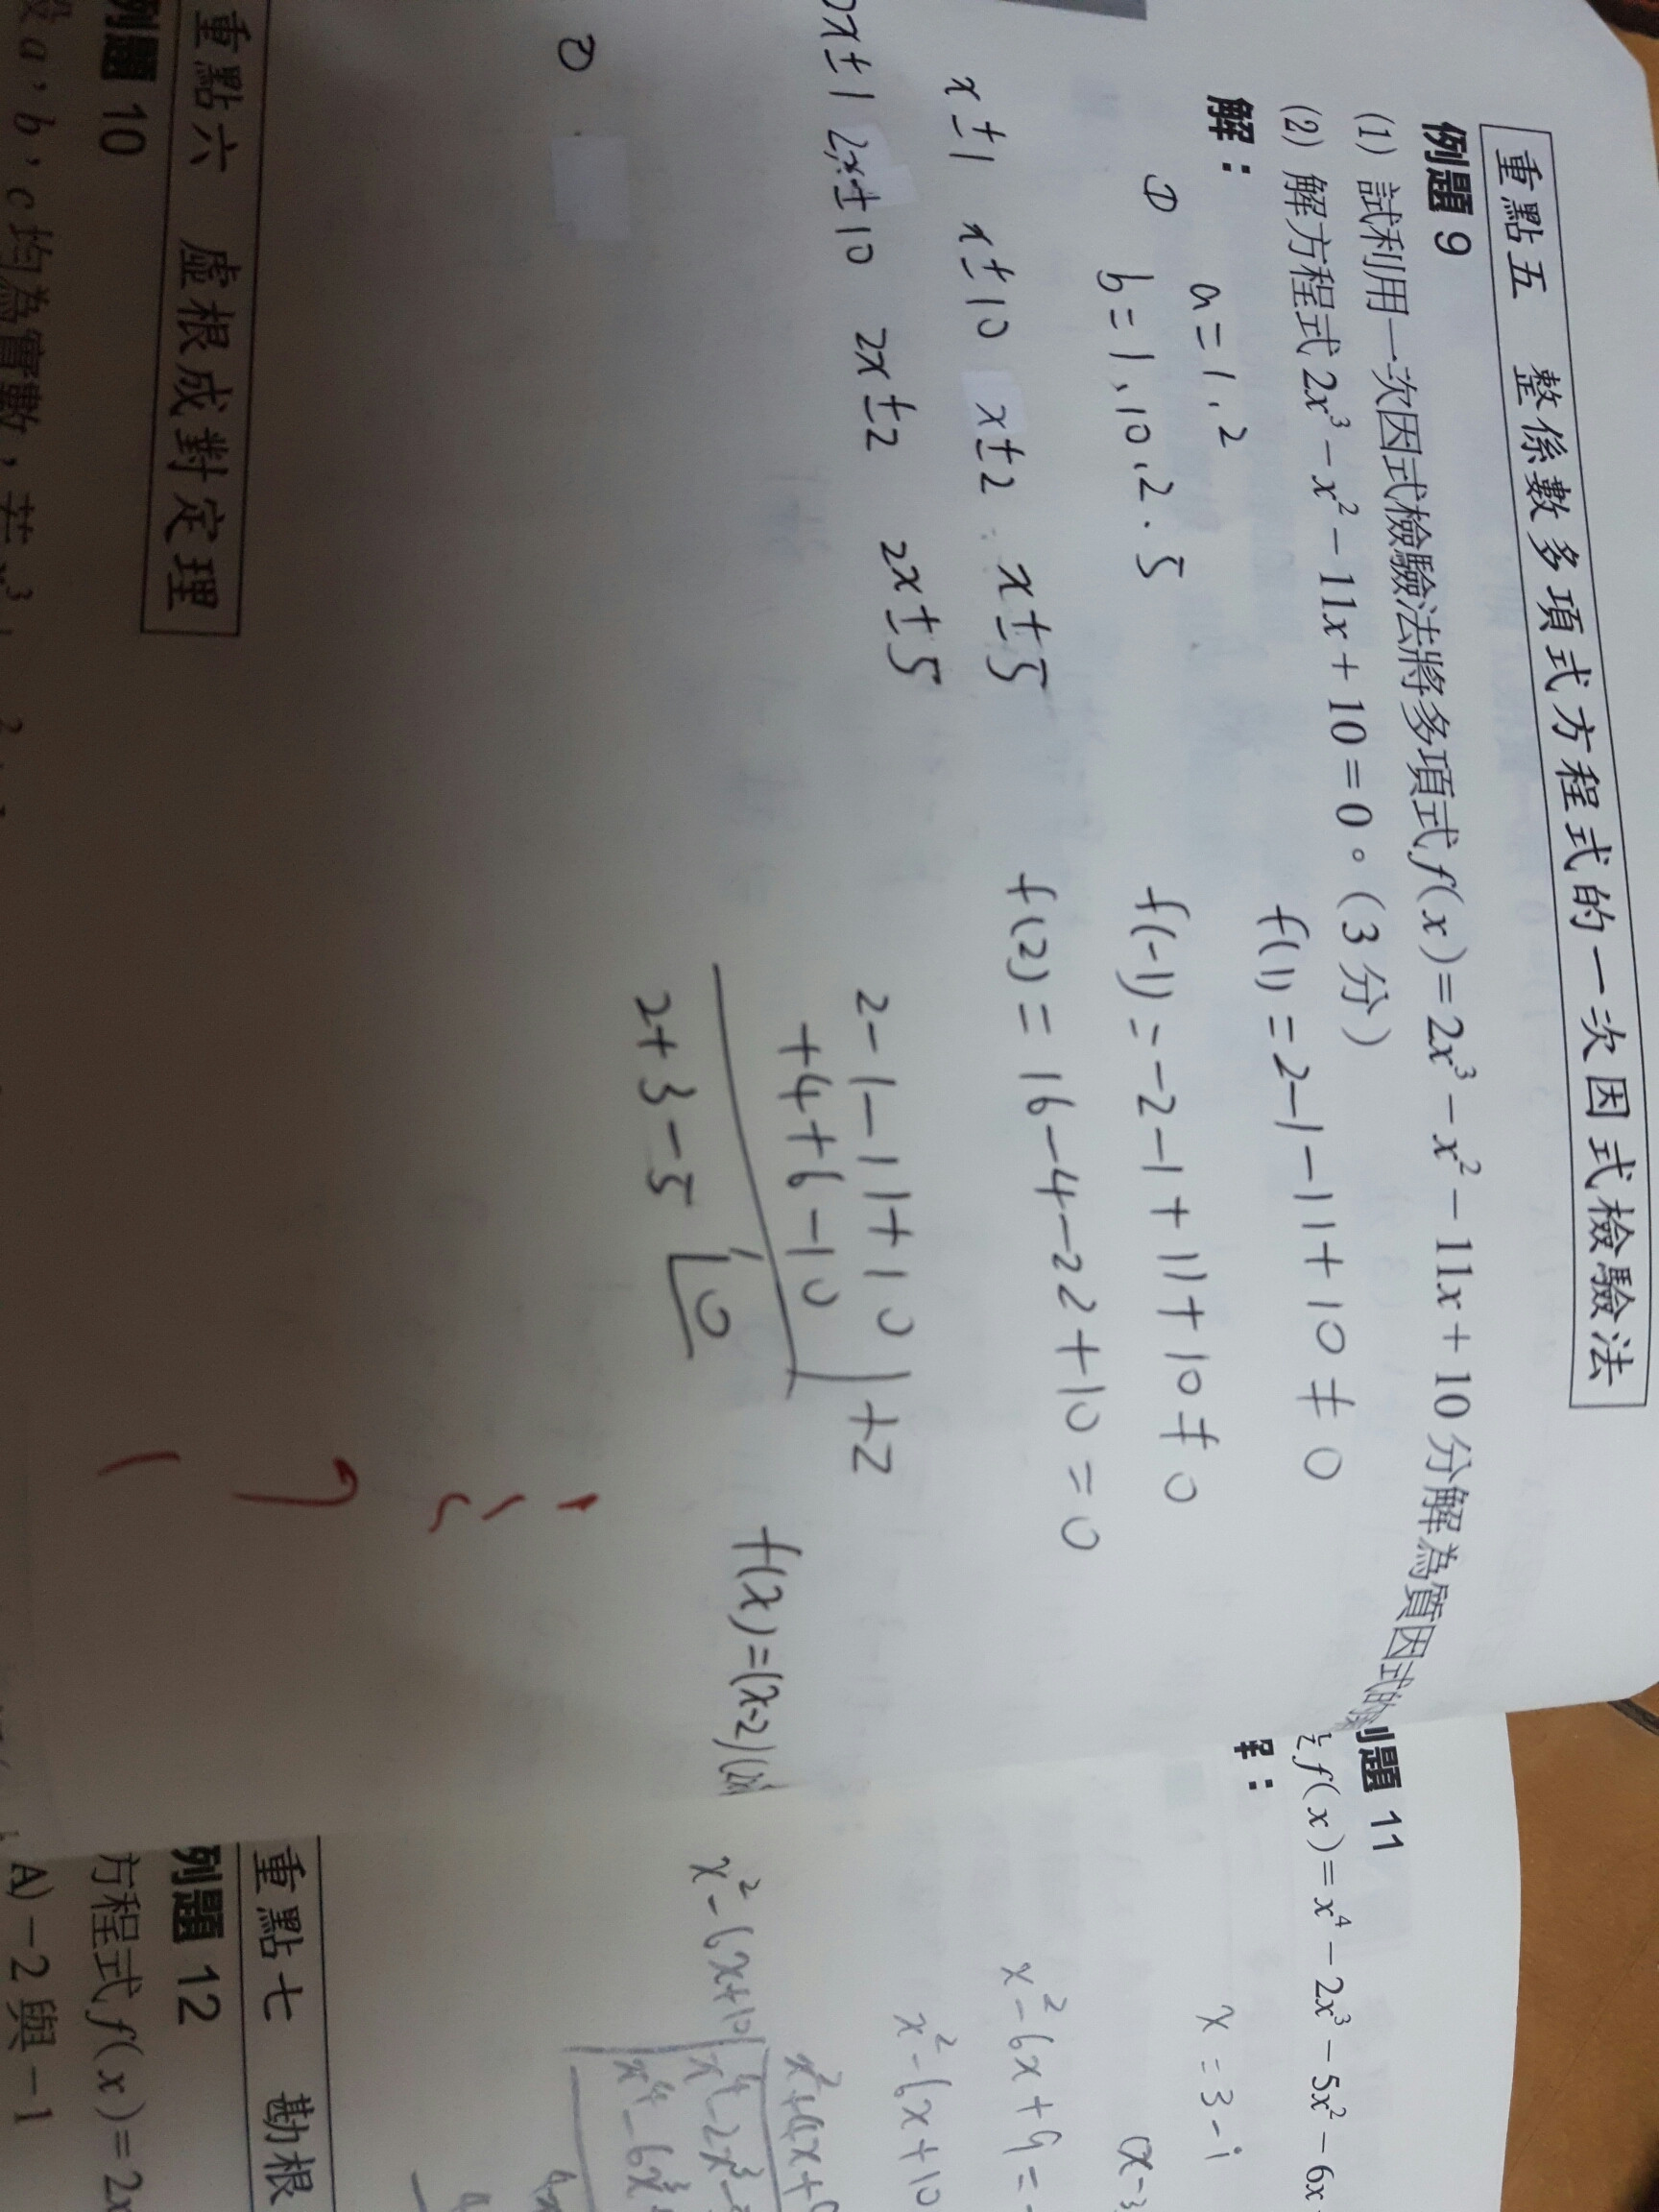 重點五 整係數多項式方程式的一次因式檢驗法
例題 9
(1) 試利用一次因式檢驗法將多項式 f(x)=2x³-x²-11x+10 分解為質因式的
(2) 解方程式 2x³-x²-11x+10=0。(3分)
解：
① a=1、2
b=1、10、2、5
x±1 x±10 x±2 x±5
2x±1 2x±10 2x±2 2x±5
②
f(1)=2-1-11+10≠0
f(-1)=-2-1+11+10≠0
f(2)=16-4-22+10=0
2-1-11+10 | +2
+4+6-10
2+3-5 | 0
f(x)=(x-2)(2x
重點六 虛根成對定理
例題 10
設 a，b，c 均為實數，若 x³
例題 11
f(x)=x⁴-2x³-5x²-6x
解：
x=3-i
(x-3
x²-6x+9=-
x²-6x+10
x²+4x+
x²-6x+10 x⁴-2x³-
x⁴-6x³
重點七 勘根
例題 12
方程式 f(x)=2x
A) -2 與 -1